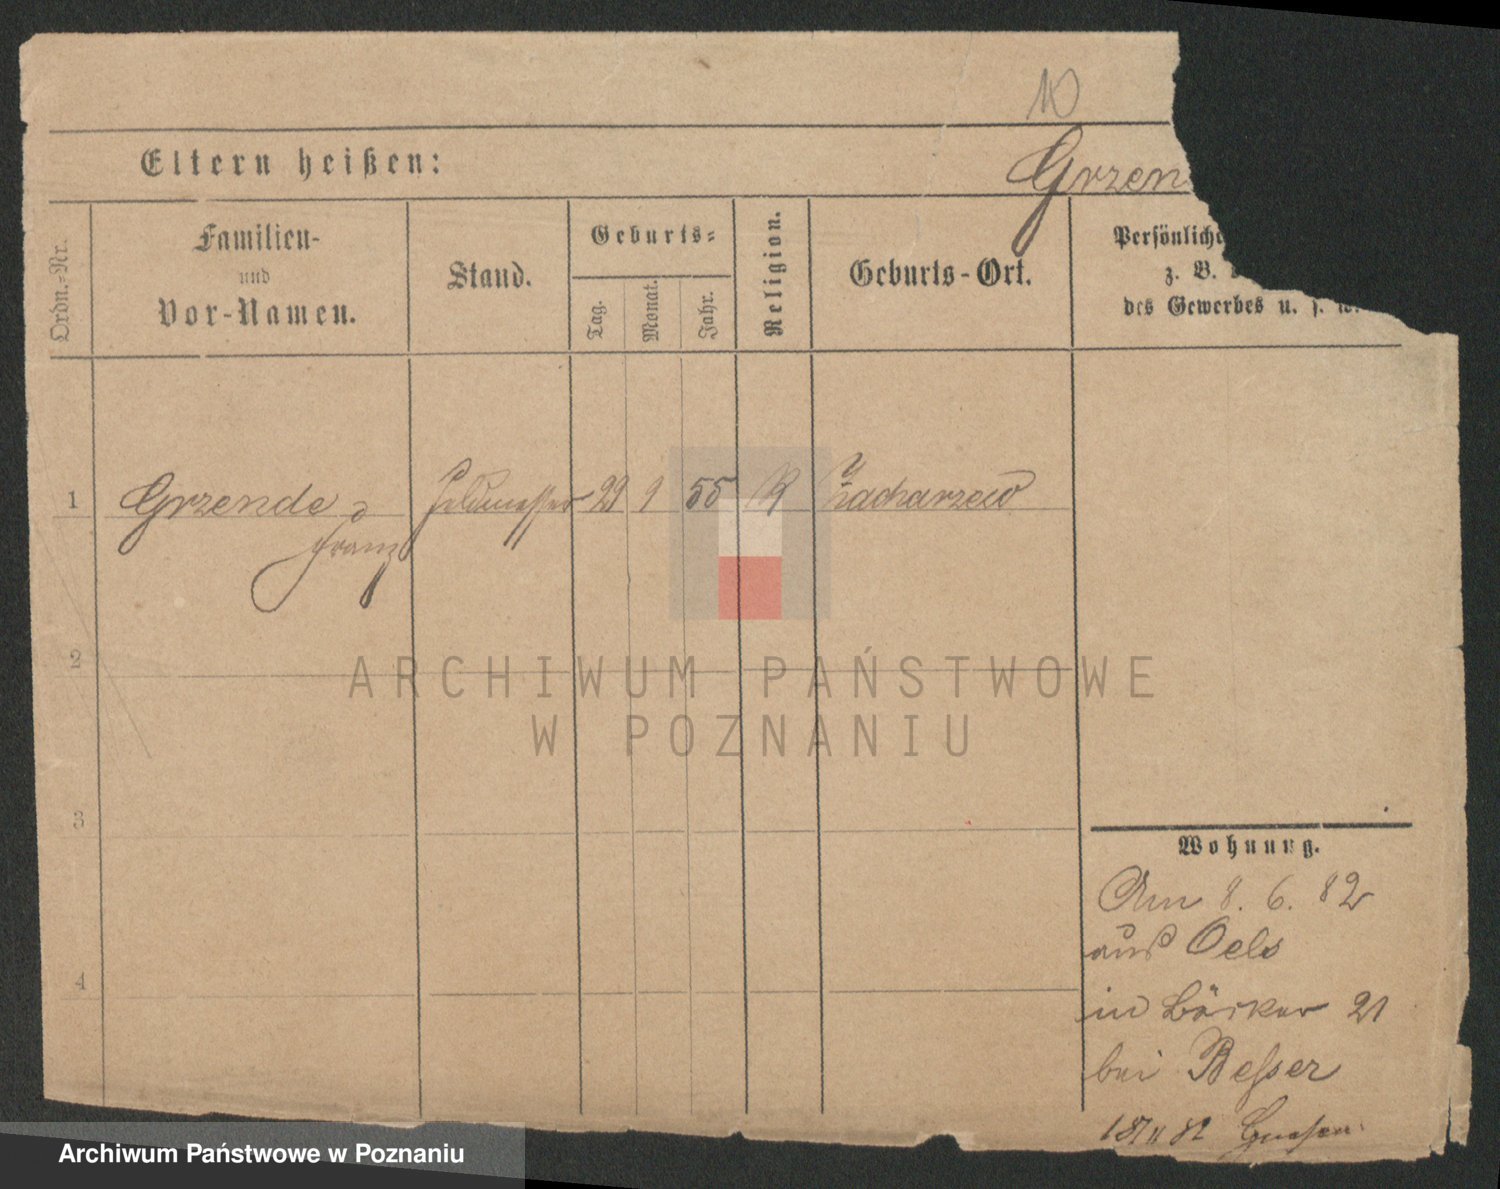 10
Eltern heißen:
Grzen
Ordn.-Nr.
Familien-
und
Vor-Namen.
Stand.
Geburts-
Tag.
Monat.
Jahr.
Religion.
Geburts-Ort.
Persönliche
z. B.
des Gewerbes u. s. w.
1 Grzende Feldmesser 29 9 55 K Zacharzew
Franz
2
ARCHIWUM PAŃSTWOWE
W POZNANIU
3
Wohnung.
Am 8. 6. 82
aus Oels
in Bäcker 21
bei Besser
4
82 Gnesen.
Archiwum Państwowe w Poznaniu